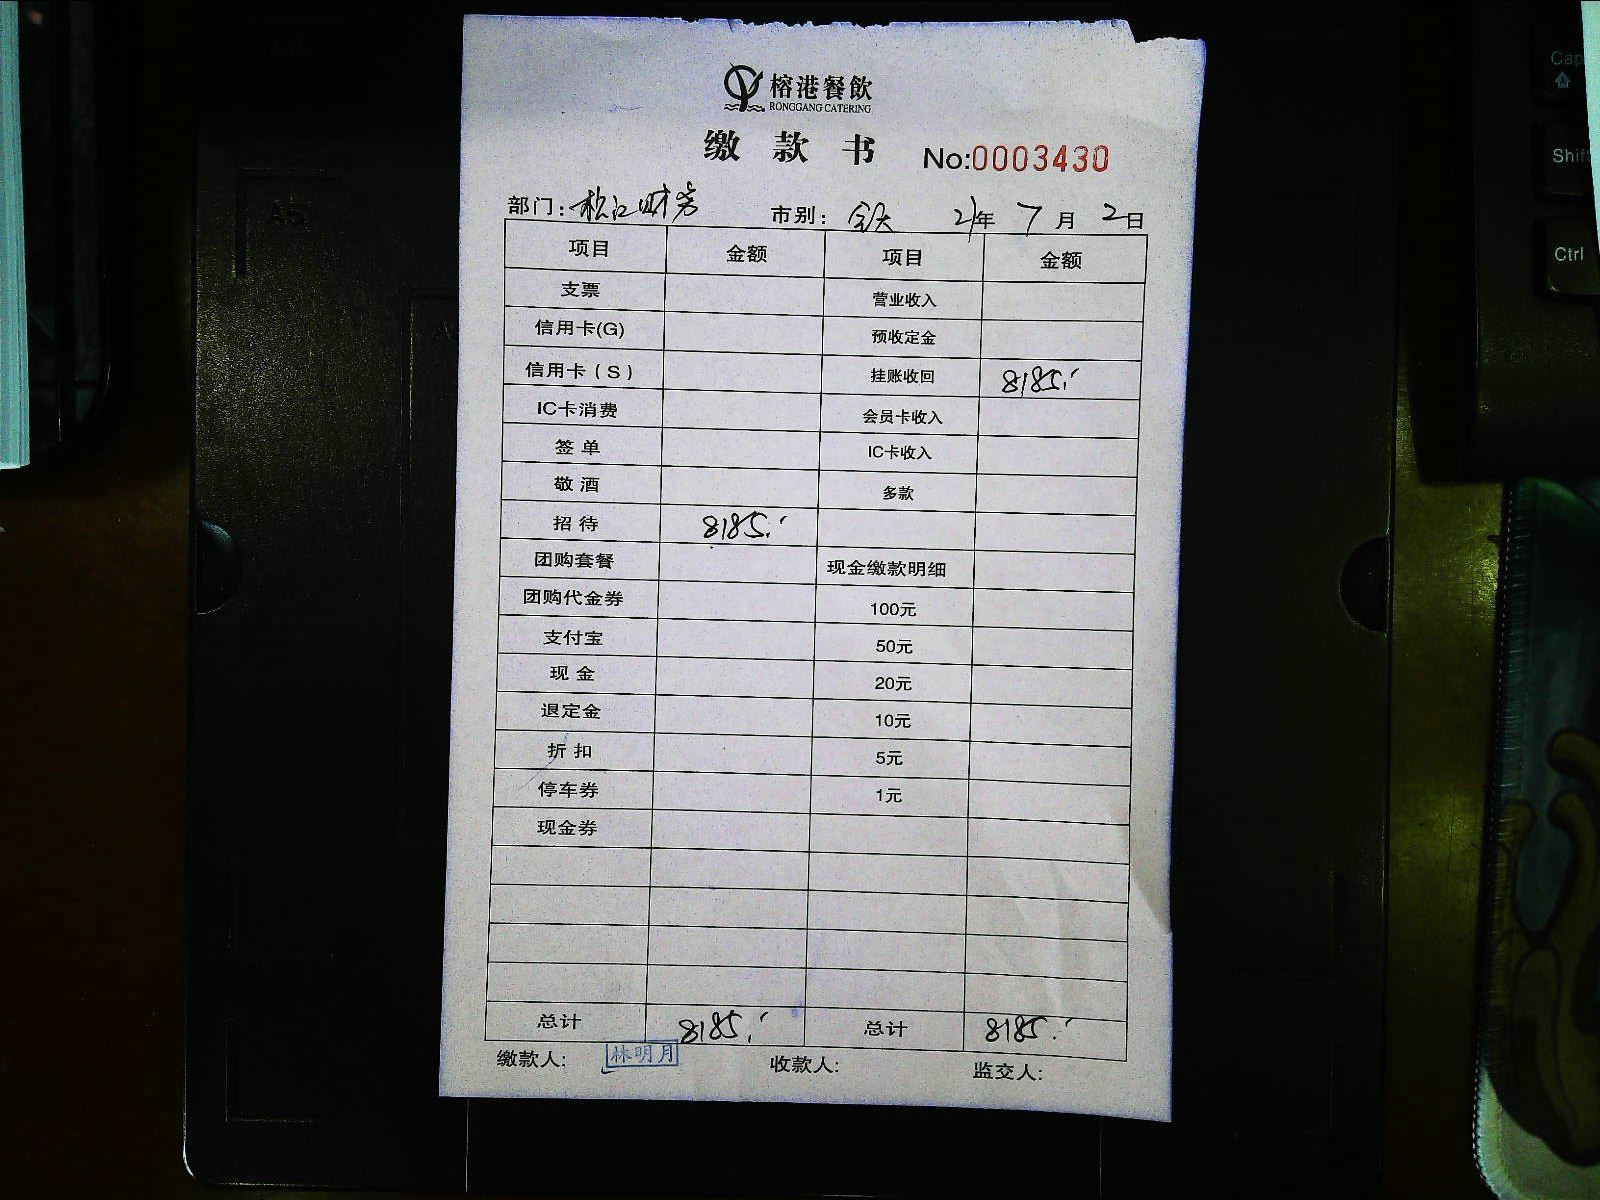 榕港餐飲
RONGGANG CATERING
缴款书 No:0003430
部门: 松江财务 市别: 全天 21年 7月 2日
项目 金额 项目 金额
支票 营业收入
信用卡(G) 预收定金
信用卡(S) 挂账收回 8185.-
IC卡消费 会员卡收入
签单 IC卡收入
敬酒 多款
招待 8185.-
团购套餐 现金缴款明细
团购代金券 100元
支付宝 50元
现金 20元
退定金 10元
折扣 5元
停车券 1元
现金券
总计 8185.- 总计 8185.-
缴款人: 林明月 收款人: 监交人:
Cap
Shift
Ctrl
A5